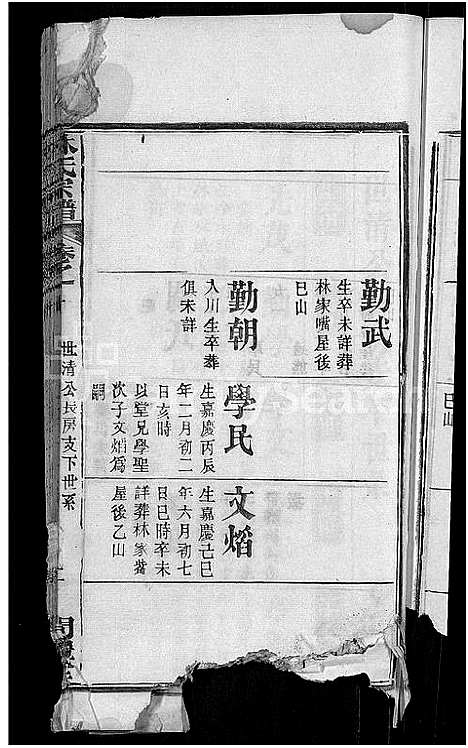 勤武
生卒未詳葬
林家嘴屋後
巳山
勤朝
入川生卒葬
俱未詳
學民
生嘉慶丙辰
年二月初二
日亥時
以堂兄學聖
次子文熖為
嗣
文熖
生嘉慶己巳
年六月初七
日巳時卒未
詳葬林家嘴
屋後乙山
氏宗譜
卷之十
世清公長房支下世系
巳山